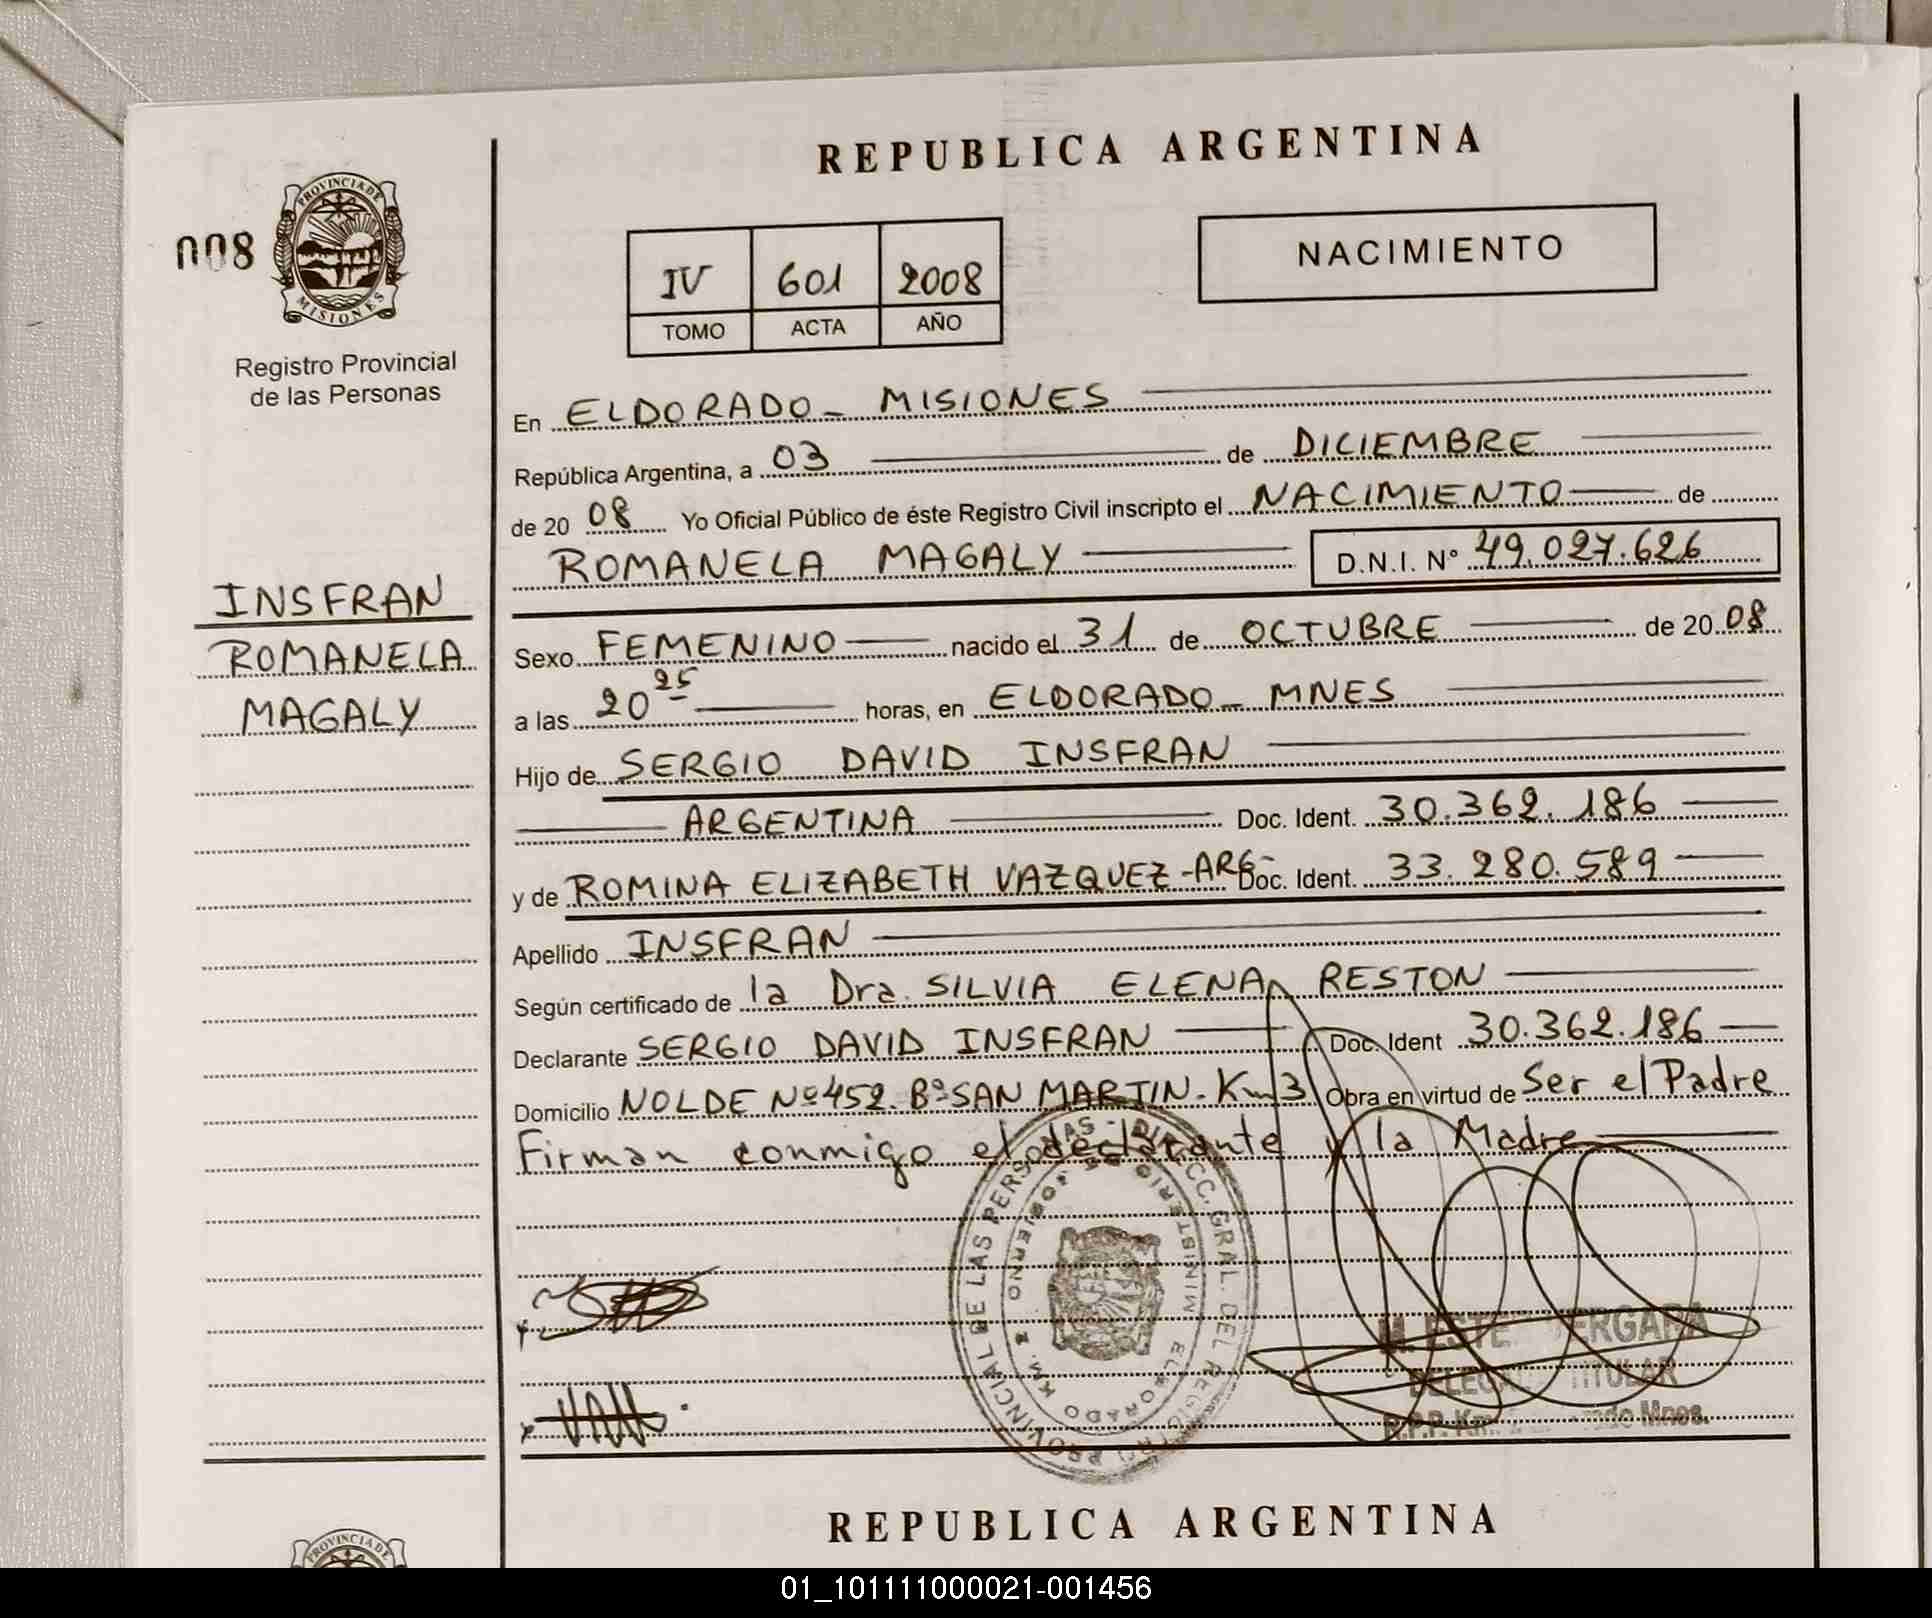 REPUBLICA ARGENTINA
008
PROVINCIA DE
MISIONES
Registro Provincial
de las Personas
IV 601 2008
TOMO ACTA AÑO
NACIMIENTO
En ELDORADO - MISIONES
República Argentina, a 03 de DICIEMBRE
de 20 08 Yo Oficial Público de éste Registro Civil inscripto el NACIMIENTO de
ROMANELA MAGALY D.N.I. Nº 49.027.626
INSFRAN
ROMANELA
MAGALY
Sexo FEMENINO nacido el 31 de OCTUBRE de 20 08
a las 20 25 horas, en ELDORADO - MNES
Hijo de SERGIO DAVID INSFRAN
ARGENTINA Doc. Ident. 30.362.186
y de ROMINA ELIZABETH VAZQUEZ - ARG - Doc. Ident. 33.280.589
Apellido INSFRAN
Según certificado de la Dra. SILVIA ELENA RESTON
Declarante SERGIO DAVID INSFRAN Doc. Ident 30.362.186
Domicilio NOLDE Nº 452. Bº SAN MARTIN. Km 3 Obra en virtud de Ser el Padre
Firman conmigo el declarante y la Madre
DIRECC. GRAL. DEL REGISTRO PROVINCIAL DE LAS PERSONAS
MINISTERIO DE GOBIERNO
ELDORADO KM.
VERGARA
TITULAR
R.P.P. Mnes.
REPUBLICA ARGENTINA
PROVINCIA DE
01_101111000021-001456